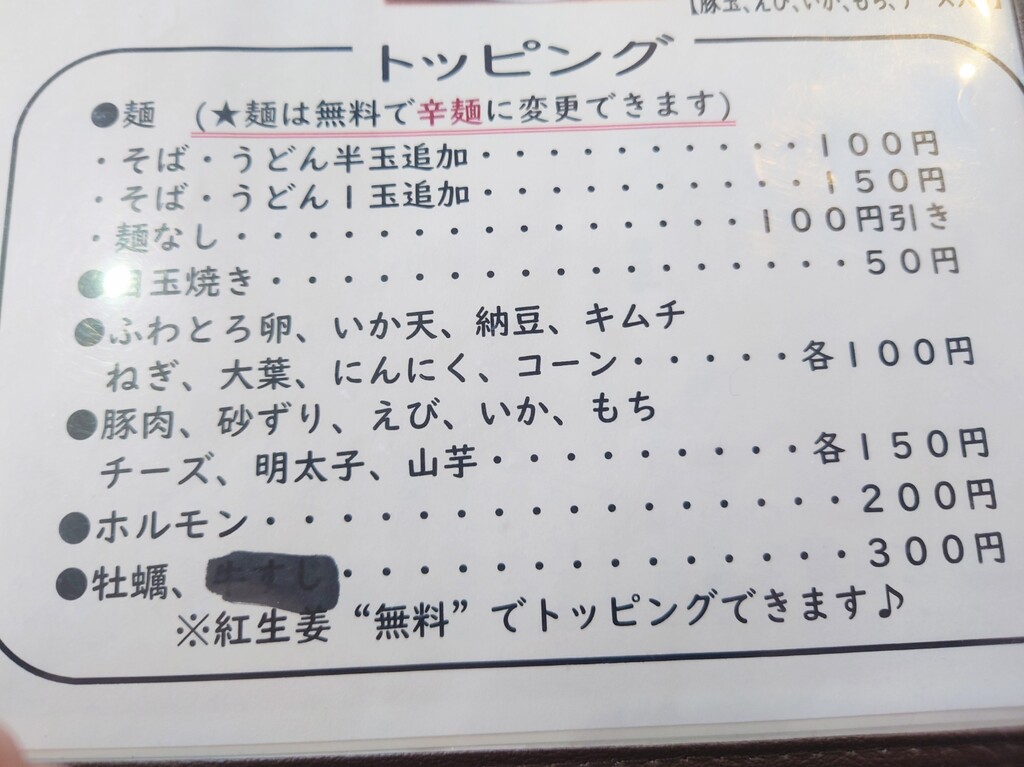 【豚玉、えび、いか、もち、チーズ入
トッピング
●麺 (★麺は無料で辛麺に変更できます)
・そば・うどん半玉追加・・・・・・・・・・・100円
・そば・うどん1玉追加・・・・・・・・・・・150円
・麺なし・・・・・・・・・・・・・・・・・100円引き
●目玉焼き・・・・・・・・・・・・・・・・・・50円
●ふわとろ卵、いか天、納豆、キムチ
ねぎ、大葉、にんにく、コーン・・・・・各100円
●豚肉、砂ずり、えび、いか、もち
チーズ、明太子、山芋・・・・・・・・・各150円
●ホルモン・・・・・・・・・・・・・・・・200円
●牡蠣、牛すじ・・・・・・・・・・・・・・300円
※紅生姜“無料”でトッピングできます♪